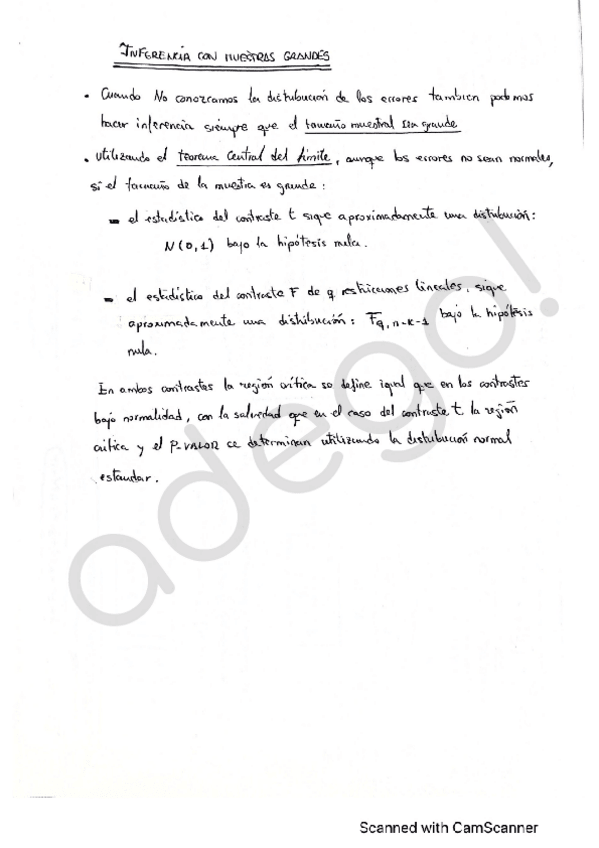 INFERENCIA CON MUESTRAS GRANDES
• Cuando No conozcamos la distribución de los errores tambien podemos
hacer inferencia siempre que el tamaño muestral sea grande
• Utilizando el teorema Central del Límite, aunque los errores no sean normales,
si el tamaño de la muestra es grande:
- el estadístico del contraste t sigue aproximadamente una distribución:
N(0,1) bajo la hipótesis nula.
- el estadístico del contraste F de q restricciones lineales, sigue
aproximadamente una distribución: Fq,n-k-1 bajo la hipótesis
nula.
En ambos contrastes la región crítica se define igual que en los contrastes
bajo normalidad, con la salvedad que en el caso del contraste t la región
crítica y el P-VALOR se determinan utilizando la distribución normal
estandar.
adego!
Scanned with CamScanner